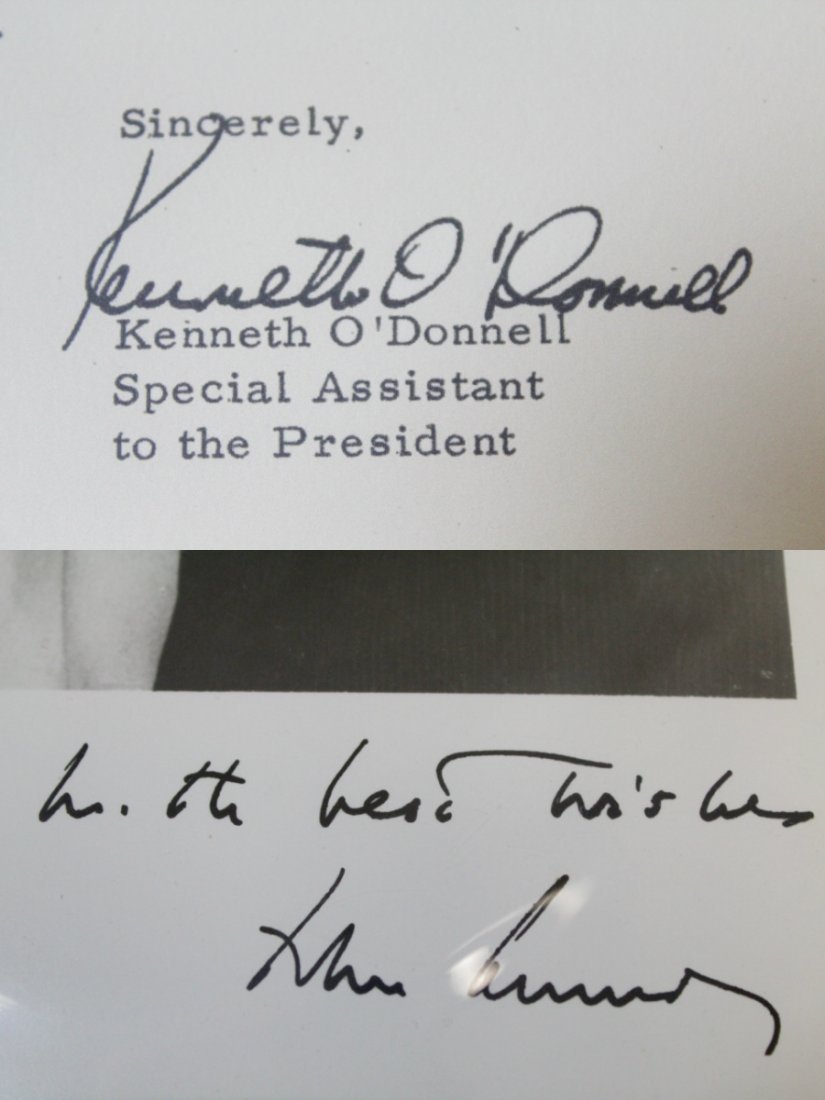 Sincerely,
Kenneth O'Donnell
Kenneth O'Donnell
Special Assistant
to the President
with best wishes
John Kennedy